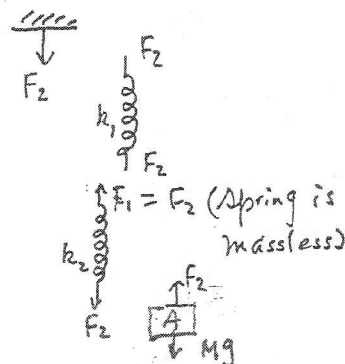 F₂
F₂
k₁
F₂
F₁ = F₂ (Spring is
massless)
k₂
F₂
F₂
A
Mg